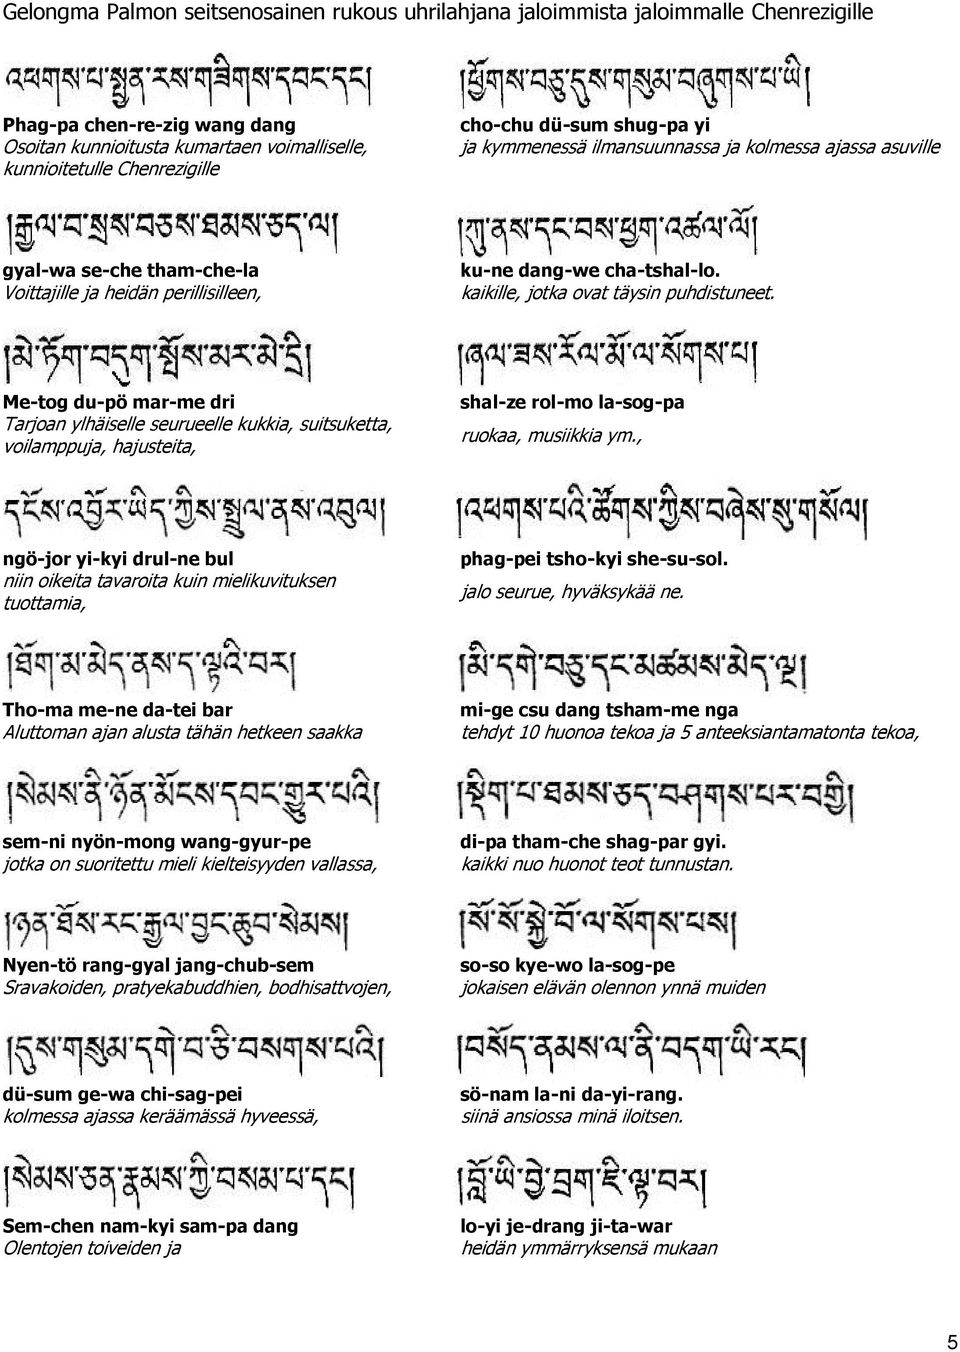 Gelongma Palmon seitsenosainen rukous uhrilahjana jaloimmista jaloimmalle Chenrezigille
འཕགས་པ་སྤྱན་རས་གཟིགས་དབང་དང༌།
།ཕྱོགས་བཅུ་དུས་གསུམ་བཞུགས་པ་ཡི།
Phag-pa chen-re-zig wang dang
Osoitan kunnioitusta kumartaen voimalliselle,
kunnioitetulle Chenrezigille
cho-chu dü-sum shug-pa yi
ja kymmenessä ilmansuunnassa ja kolmessa ajassa asuville
།རྒྱལ་བ་སྲས་བཅས་ཐམས་ཅད་ལ།
།ཀུ་ནས་དང་བས་ཕྱག་འཚལ་ལོ།
gyal-wa se-che tham-che-la
Voittajille ja heidän perillisilleen,
ku-ne dang-we cha-tshal-lo.
kaikille, jotka ovat täysin puhdistuneet.
།མེ་ཏོག་བདུག་སྤོས་མར་མེ་དྲི།
།ཞལ་ཟས་རོལ་མོ་ལ་སོགས་པ།
Me-tog du-pö mar-me dri
Tarjoan ylhäiselle seurueelle kukkia, suitsuketta,
voilamppuja, hajusteita,
shal-ze rol-mo la-sog-pa
ruokaa, musiikkia ym.,
དངོས་འབྱོར་ཡིད་ཀྱིས་སྤྲུལ་ནས་འབུལ།
།འཕགས་པའི་ཚོགས་ཀྱིས་བཞེས་སུ་གསོལ།
ngö-jor yi-kyi drul-ne bul
niin oikeita tavaroita kuin mielikuvituksen
tuottamia,
phag-pei tsho-kyi she-su-sol.
jalo seurue, hyväksykää ne.
།ཐོག་མ་མེད་ནས་ད་ལྟའི་བར།
།མི་དགེ་བཅུ་དང་མཚམས་མེད་ལྔ།
Tho-ma me-ne da-tei bar
Aluttoman ajan alusta tähän hetkeen saakka
mi-ge csu dang tsham-me nga
tehdyt 10 huonoa tekoa ja 5 anteeksiantamatonta tekoa,
།སེམས་ནི་ཉོན་མོངས་དབང་གྱུར་པའི།
།སྡིག་པ་ཐམས་ཅད་བཤགས་པར་བགྱི།
sem-ni nyön-mong wang-gyur-pe
jotka on suoritettu mieli kielteisyyden vallassa,
di-pa tham-che shag-par gyi.
kaikki nuo huonot teot tunnustan.
།ཉན་ཐོས་རང་རྒྱལ་བྱང་ཆུབ་སེམས།
།སོ་སོ་སྐྱེ་བོ་ལ་སོགས་པས།
Nyen-tö rang-gyal jang-chub-sem
Sravakoiden, pratyekabuddhien, bodhisattvojen,
so-so kye-wo la-sog-pe
jokaisen elävän olennon ynnä muiden
།དུས་གསུམ་དགེ་བ་ཅི་བསགས་པའི།
།བསོད་ནམས་ལ་ནི་བདག་ཡི་རང༌།
dü-sum ge-wa chi-sag-pei
kolmessa ajassa keräämässä hyveessä,
sö-nam la-ni da-yi-rang.
siinä ansiossa minä iloitsen.
།སེམས་ཅན་རྣམས་ཀྱི་བསམ་པ་དང༌།
།བློ་ཡི་བྱེ་བྲག་ཇི་ལྟ་བར།
Sem-chen nam-kyi sam-pa dang
Olentojen toiveiden ja
lo-yi je-drang ji-ta-war
heidän ymmärryksensä mukaan
5